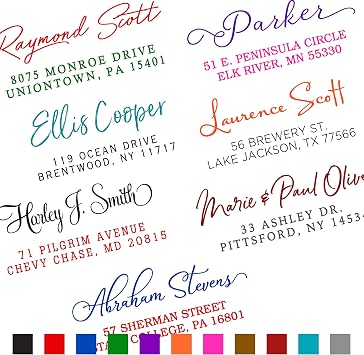 Raymond Scott
8075 MONROE DRIVE
UNIONTOWN, PA 15401
Parker
51 E. PENINSULA CIRCLE
ELK RIVER, MN 55330
Ellis Cooper
119 OCEAN DRIVE
BRENTWOOD, NY 11717
Laurence Scott
56 BREWERY ST.
LAKE JACKSON, TX 77566
Harley J. Smith
71 PILGRIM AVENUE
CHEVY CHASE, MD 20815
Marie & Paul Olive
33 ASHLEY DR.
PITTSFORD, NY 1453
Abraham Stevens
57 SHERMAN STREET
STA COLLEGE, PA 16801